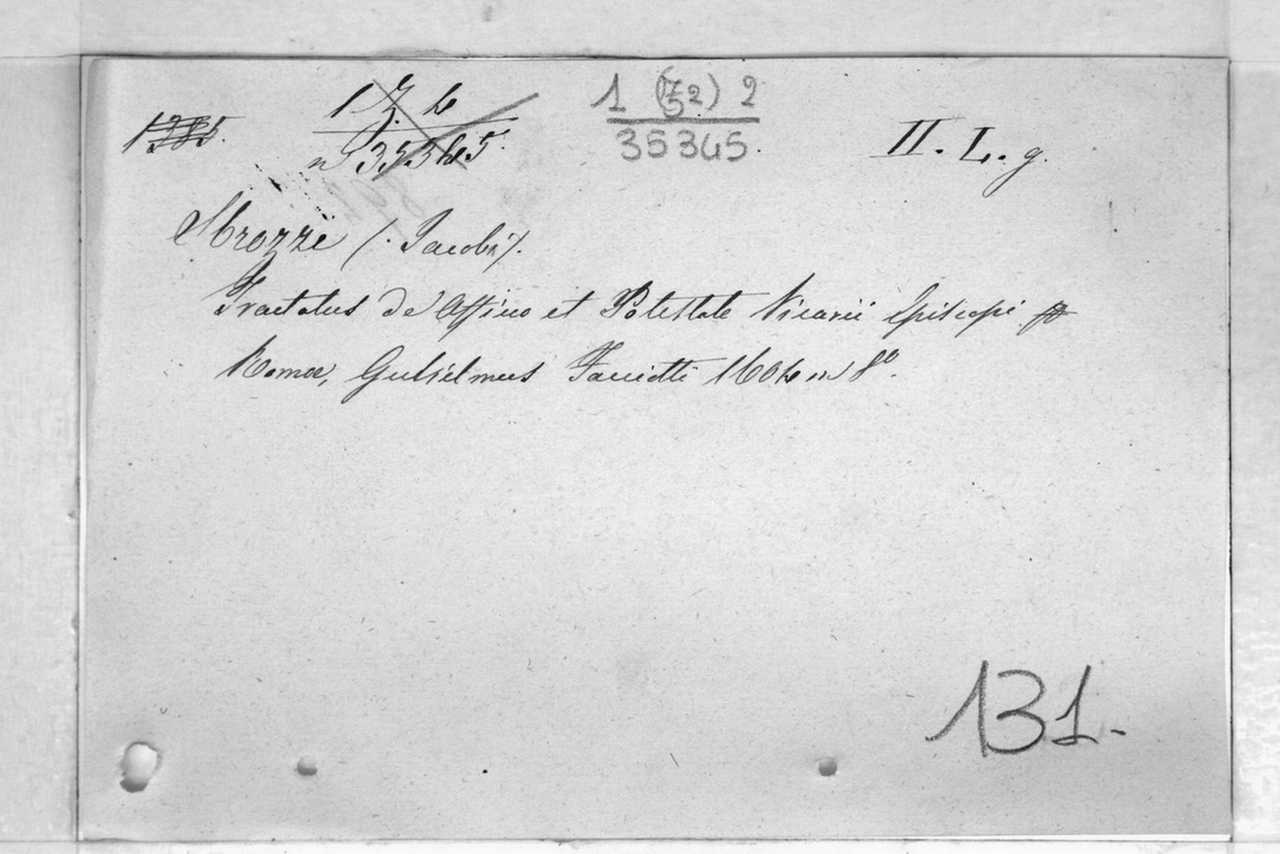 1 (7/52) 2
35345.
II. L. g.
(Jacobi).
Tractatus de Officio et Potestate Vicarii Episcopi
Romae, Gulielmus Facciotti 1604 in 8°.
131.